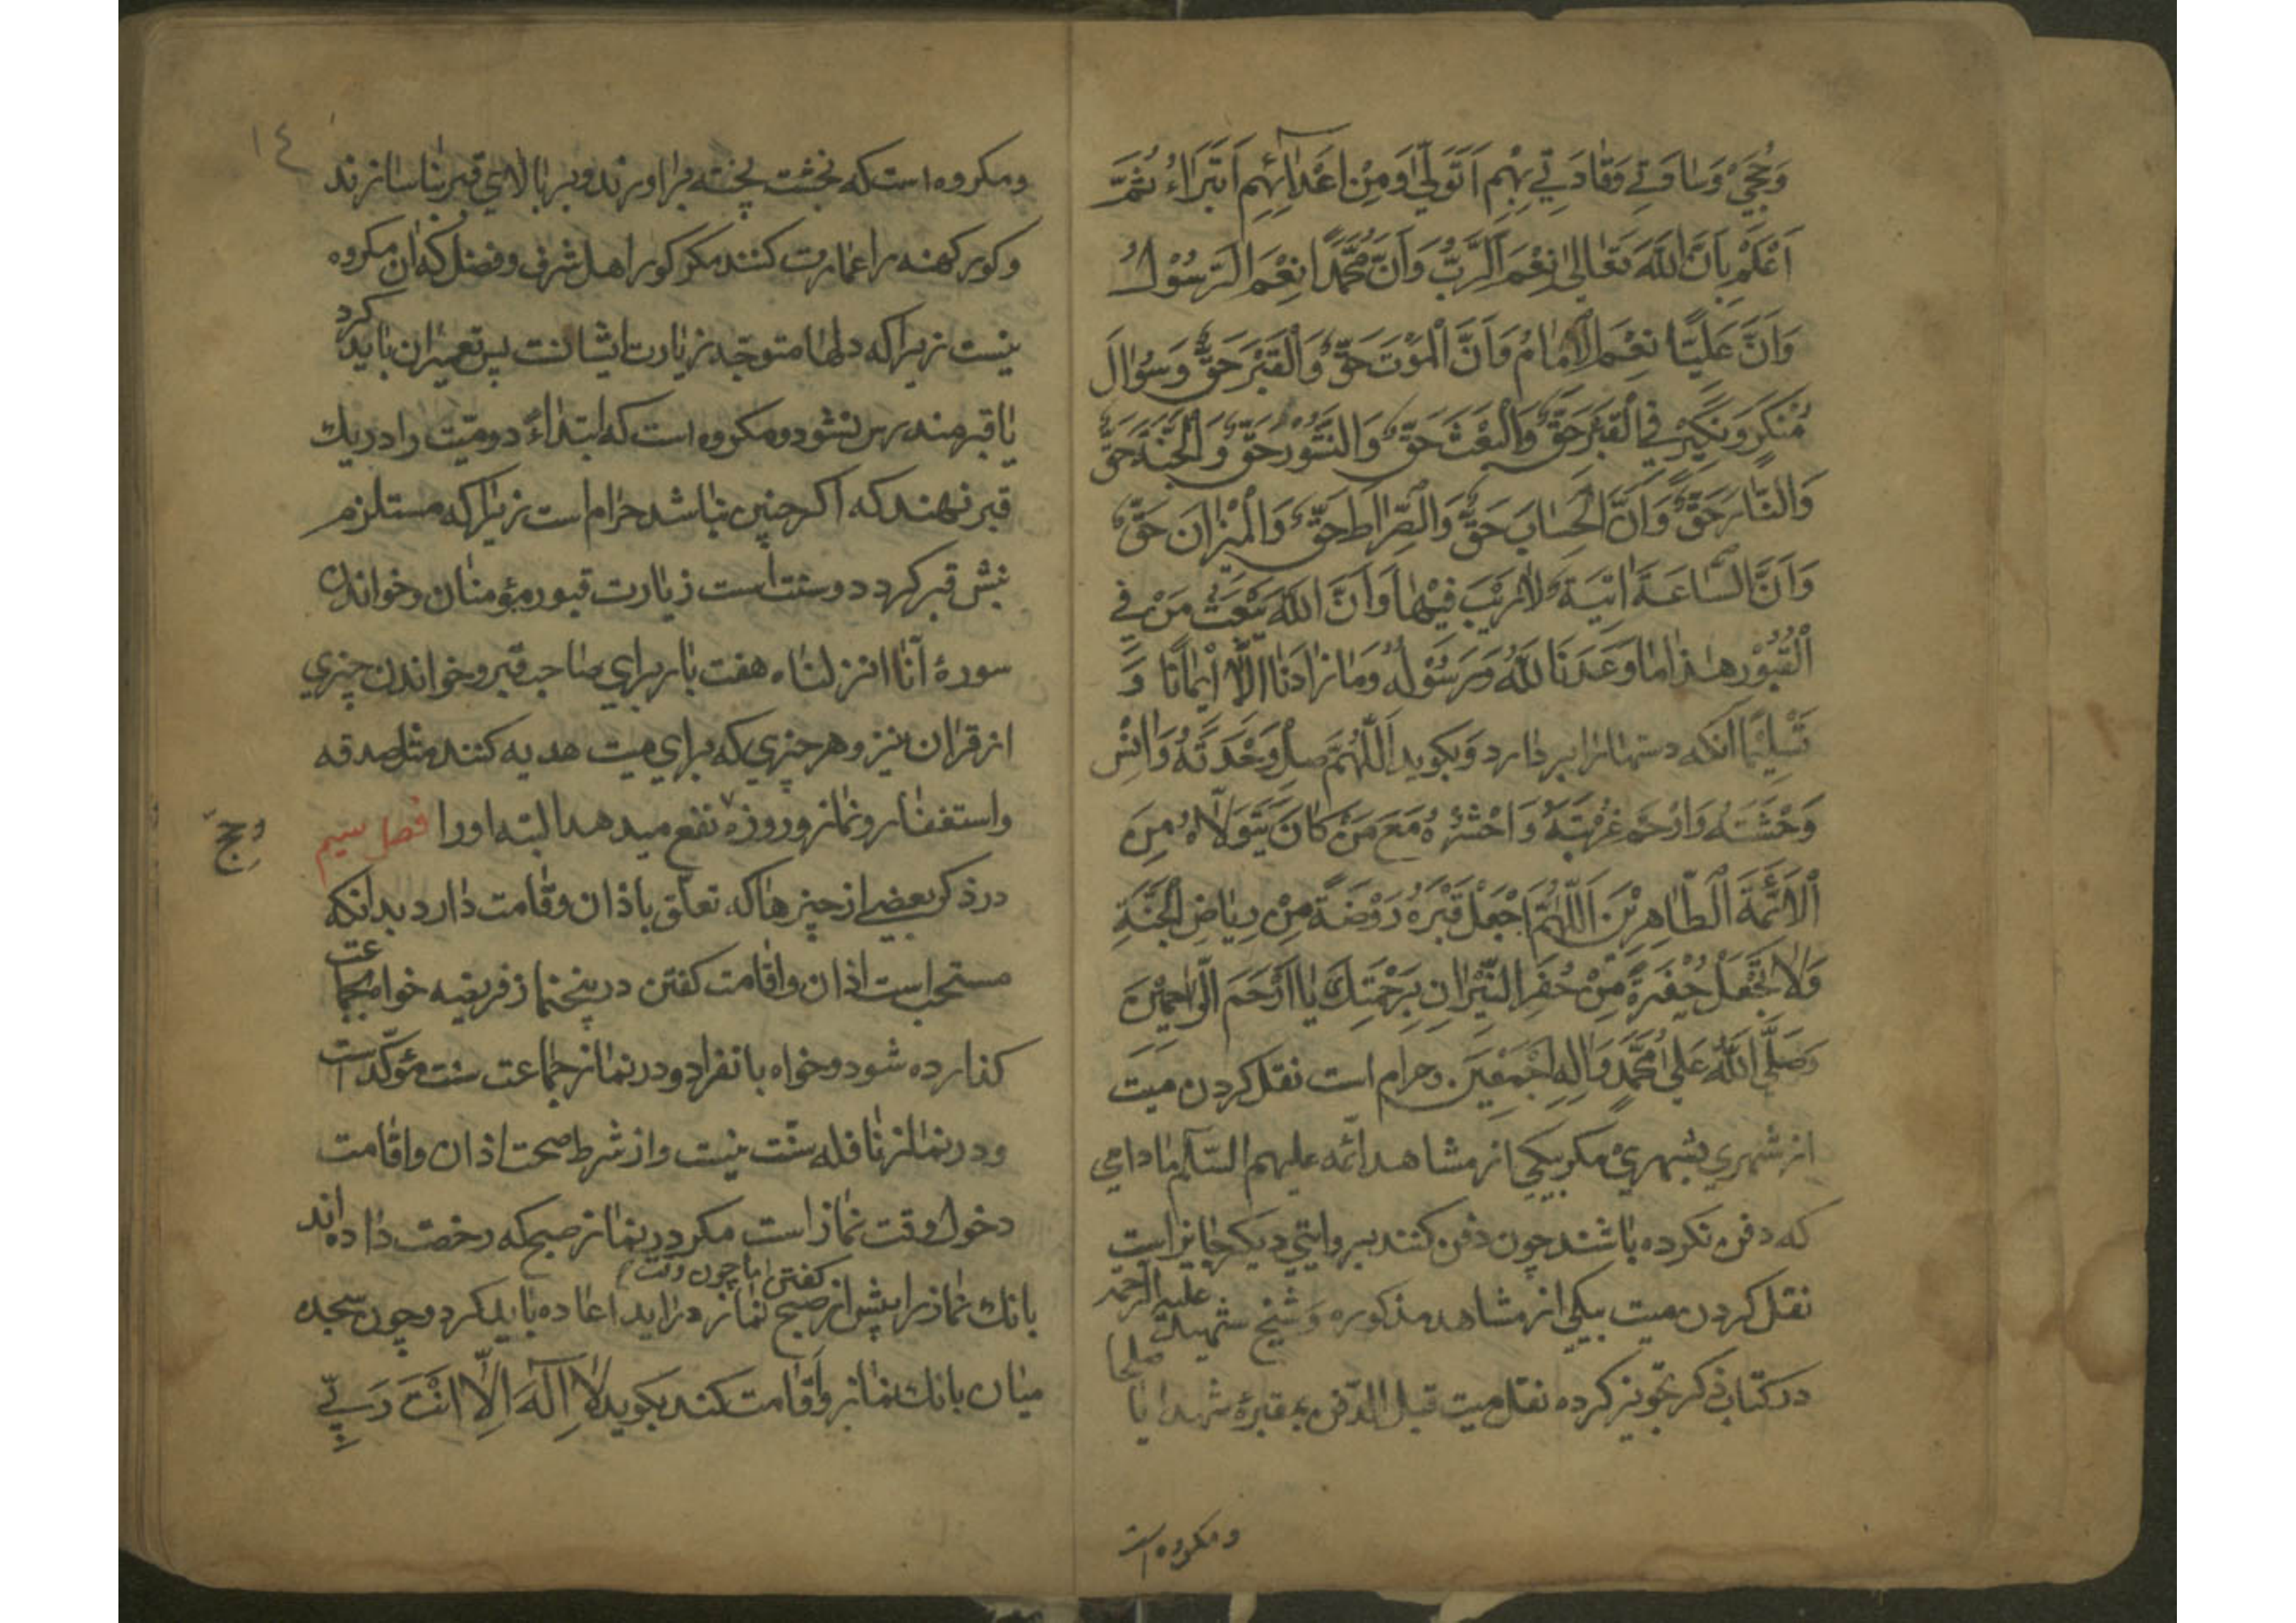 وَحُجَجِيْ وَسٰادَتِيْ وَقٰادَتِيْ بِهِمْ اَتَوَلّٰي وَمِنْ اَعْدٰآئِهِمْ اَتَبَرَّاءُ ثُمَّ
اَعْلَمْ بِاَنَّ اللّٰهَ تَعٰالٰي نِعْمَ الرَّبُّ وَاَنَّ مُحَمَّدًا نِعْمَ الرَّسُوْلُ
وَاَنَّ عَلِيًّا نِعْمَ الْاِمٰامُ وَاَنَّ الْمَوْتَ حَقٌّ وَالْقَبْرَ حَقٌّ وَسُؤٰالَ
مُنْكَرٍ وَنَكِيْرٍ فِي الْقَبْرِ حَقٌّ وَالْبَعْثَ حَقٌّ وَالنُّشُوْرَ حَقٌّ وَالْجَنَّةَ حَقٌّ
وَالنّٰارَ حَقٌّ وَاَنَّ الْحِسٰابَ حَقٌّ وَالصِّرٰاطَ حَقٌّ وَالْمِيْزٰانَ حَقٌّ
وَاَنَّ السّٰاعَةَ اٰتِيَةٌ لٰارَيْبَ فِيْهٰا وَاَنَّ اللّٰهَ يَبْعَثُ مَنْ فِي
الْقُبُوْرِ هٰذٰا مٰا وَعَدَنَا اللّٰهُ وَرَسُوْلُهُ وَمٰا زٰادَنٰا اِلّٰا اِيْمٰانًا وَ
تَسْلِيْمًا آنکه دستها را بردارد و بکوید اَللّٰهُمَّ صِلْ وَحْدَتَهُ وَاٰنِسْ
وَحْشَتَهُ وَارْحَمْ غُرْبَتَهُ وَاحْشُرْهُ مَعَ مَنْ كٰانَ يَتَوَلّٰاهُ مِنَ
الْاَئِمَّةِ الطّٰاهِرِيْنَ اَللّٰهُمَّ اجْعَلْ قَبْرَهُ رَوْضَةً مِنْ رِيٰاضِ الْجَنَّةِ
وَلٰا تَجْعَلْ حُفْرَةً مِنْ حُفَرِ النِّيْرٰانِ بِرَحْمَتِكَ يٰا اَرْحَمَ الرّٰاحِمِيْنَ
وَصَلَّي اللّٰهُ عَلٰي مُحَمَّدٍ وَاٰلِهِ اَجْمَعِيْنَ وحرام است نقل کردن میت
از شهري بشهري مکر بیکي از مشاهد ائمه علیهم السّلام مادامي
که دفن نکرده باشند چون دفن کنند بروایتي دیکر جایز است
نقل کردن میت بیکي از مشاهد مذکوره و شیخ شهید علیه الرحمه
در کتاب ذکر تجویز کرده نقل میت قبل الدّفن بمقبرهٔ شهدا یا صلحا
ومکروه است
١٤
ومکروه است که بخشت پخته براورند و بر بالاي قبر بنا سازند
وکور کهنه را عمارت کنند مکر کور اهل شرف وفضل که ان مکروه
نیست زیرا که دلها متوجّه زیارت ایشانست پس تعمیر ان باید کرد
تا قبر مندرس نشود ومکروه است که ابتداءً دو میّت را در یك
قبر نهند که اکر چنین نباشد حرام است زیرا که مستلزم
نبش قبر کردد وسنت است زیارت قبور مؤمنان وخواندن
سورهٔ انّا انزلناه هفت بار براي صاحب قبر وخواندن چیزي
از قران نیز وهر چیزي که براي میت هدیه کنند مثل صدقه
واستغفار ونماز وروزه نفع میدهد البته اورا فصل سیم
در ذکر بعضي از چیزها که تعلّق باذان وقامت دارد بدانکه
مستحب است اذان واقامت کفتن در پنج نماز فریضه خواه بجماعت
کذارده شود وخواه بانفراد ودر نماز جماعت سنت مؤکّد است
ودر نماز نافله سنّت نیست واز شرط صحت اذان واقامت
دخول وقت نماز است مکر در نماز صبح که رخصت داده اند
بانك نماز را پیش از صبح کفتن اما چون وقت نماز دراید اعاده باید کرد وچون سجده
میان بانك نماز واقامت کند بکوید لٰا اِلٰهَ اِلّٰا اَنْتَ رَبِّيْ